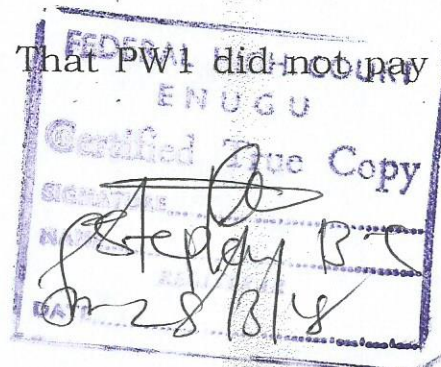 That PW1 did not pay
FEDERAL HIGH COURT
ENUGU
Certified True Copy
SIGNATURE
NAME
DATE
28/3/18